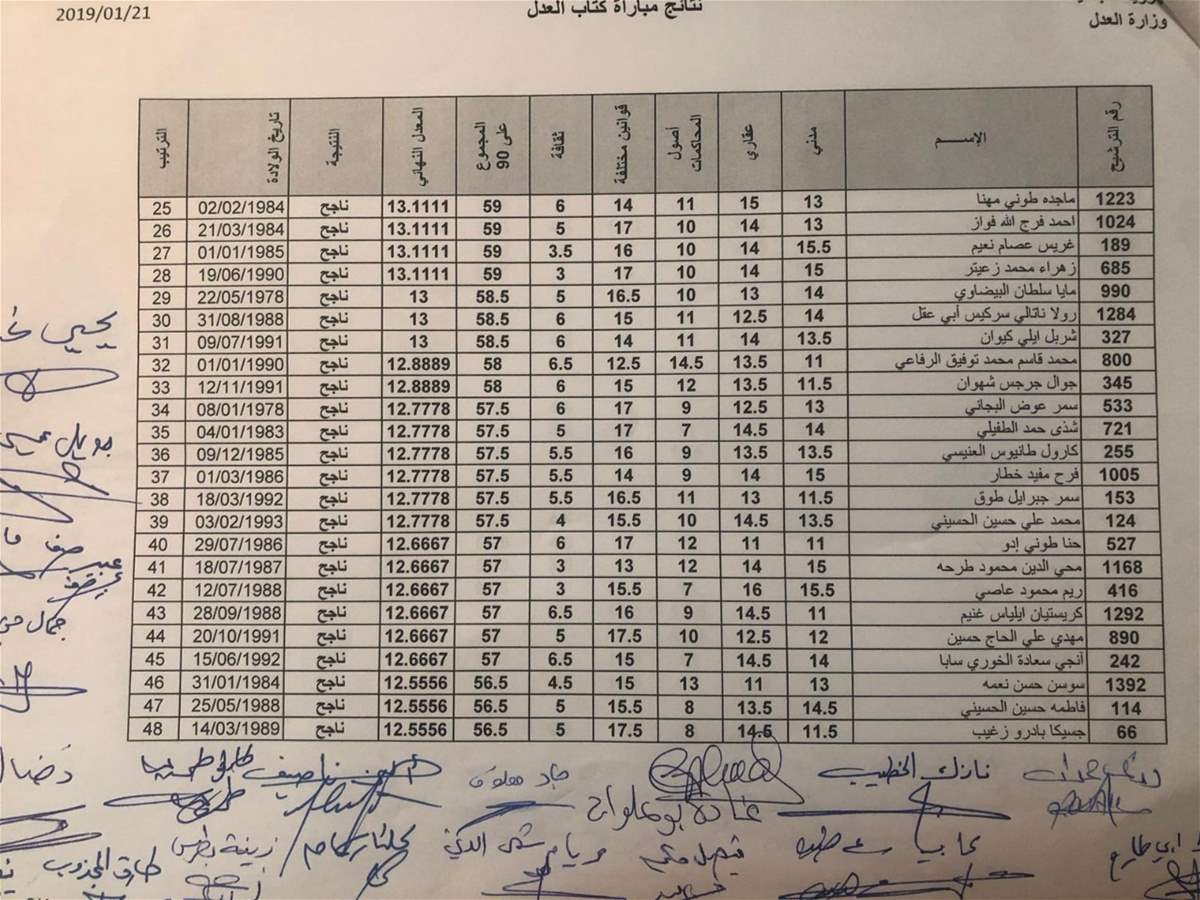 وزارة العدل
نتائج مباراة كتاب العدل
2019/01/21
رقم الترشيح الإسم مدني عقاري أصول المحاكمات قوانين مختلفة ثقافة المجموع على 90 المعدل النهائي النتيجة تاريخ الولادة الترتيب
1223 ماجده طوني مهنا 13 15 11 14 6 59 13.1111 ناجح 02/02/1984 25
1024 احمد فرج الله فواز 13 14 10 17 5 59 13.1111 ناجح 21/03/1984 26
189 غريس عصام نعيم 15.5 14 10 16 3.5 59 13.1111 ناجح 01/01/1985 27
685 زهراء محمد زعيتر 15 14 10 17 3 59 13.1111 ناجح 19/06/1990 28
990 مايا سلطان البيضاوي 14 13 10 16.5 5 58.5 13 ناجح 22/05/1978 29
1284 رولا ناتالي سركيس أبي عقل 14 12.5 11 15 6 58.5 13 ناجح 31/08/1988 30
327 شربل ايلي كيوان 13.5 14 11 14 6 58.5 13 ناجح 09/07/1991 31
800 محمد قاسم محمد توفيق الرفاعي 11 13.5 14.5 12.5 6.5 58 12.8889 ناجح 01/01/1990 32
345 جوال جرجس شهوان 11.5 13.5 12 15 6 58 12.8889 ناجح 12/11/1991 33
533 سمر عوض البجاني 13 12.5 9 17 6 57.5 12.7778 ناجح 08/01/1978 34
721 شذى حمد الطفيلي 14 14.5 7 17 5 57.5 12.7778 ناجح 04/01/1983 35
255 كارول طانيوس العنيسي 13.5 13.5 9 16 5.5 57.5 12.7778 ناجح 09/12/1985 36
1005 فرح مفيد خطار 15 14 9 14 5.5 57.5 12.7778 ناجح 01/03/1986 37
153 سمر جبرايل طوق 11.5 13 11 16.5 5.5 57.5 12.7778 ناجح 18/03/1992 38
124 محمد علي حسين الحسيني 13.5 14.5 10 15.5 4 57.5 12.7778 ناجح 03/02/1993 39
527 حنا طوني إدو 11 11 12 17 6 57 12.6667 ناجح 29/07/1986 40
1168 محي الدين محمود طرحه 15 14 12 13 3 57 12.6667 ناجح 18/07/1987 41
416 ريم محمود عاصي 15.5 16 7 15.5 3 57 12.6667 ناجح 12/07/1988 42
1292 كريستيان ايلياس غنيم 11 14.5 9 16 6.5 57 12.6667 ناجح 28/09/1988 43
890 مهدي علي الحاج حسين 12 12.5 10 17.5 5 57 12.6667 ناجح 20/10/1991 44
242 آنجي سعادة الخوري سابا 14 14.5 7 15 6.5 57 12.6667 ناجح 15/06/1992 45
1392 سوسن حسن نعمه 13 11 13 15 4.5 56.5 12.5556 ناجح 31/01/1984 46
114 فاطمه حسين الحسيني 14.5 13.5 8 15.5 5 56.5 12.5556 ناجح 25/05/1988 47
66 جسيكا بادرو زغيب 11.5 14.5 8 17.5 5 56.5 12.5556 ناجح 14/03/1989 48
نازك الخطيب
غادة بو علوان
طارق المجذوب